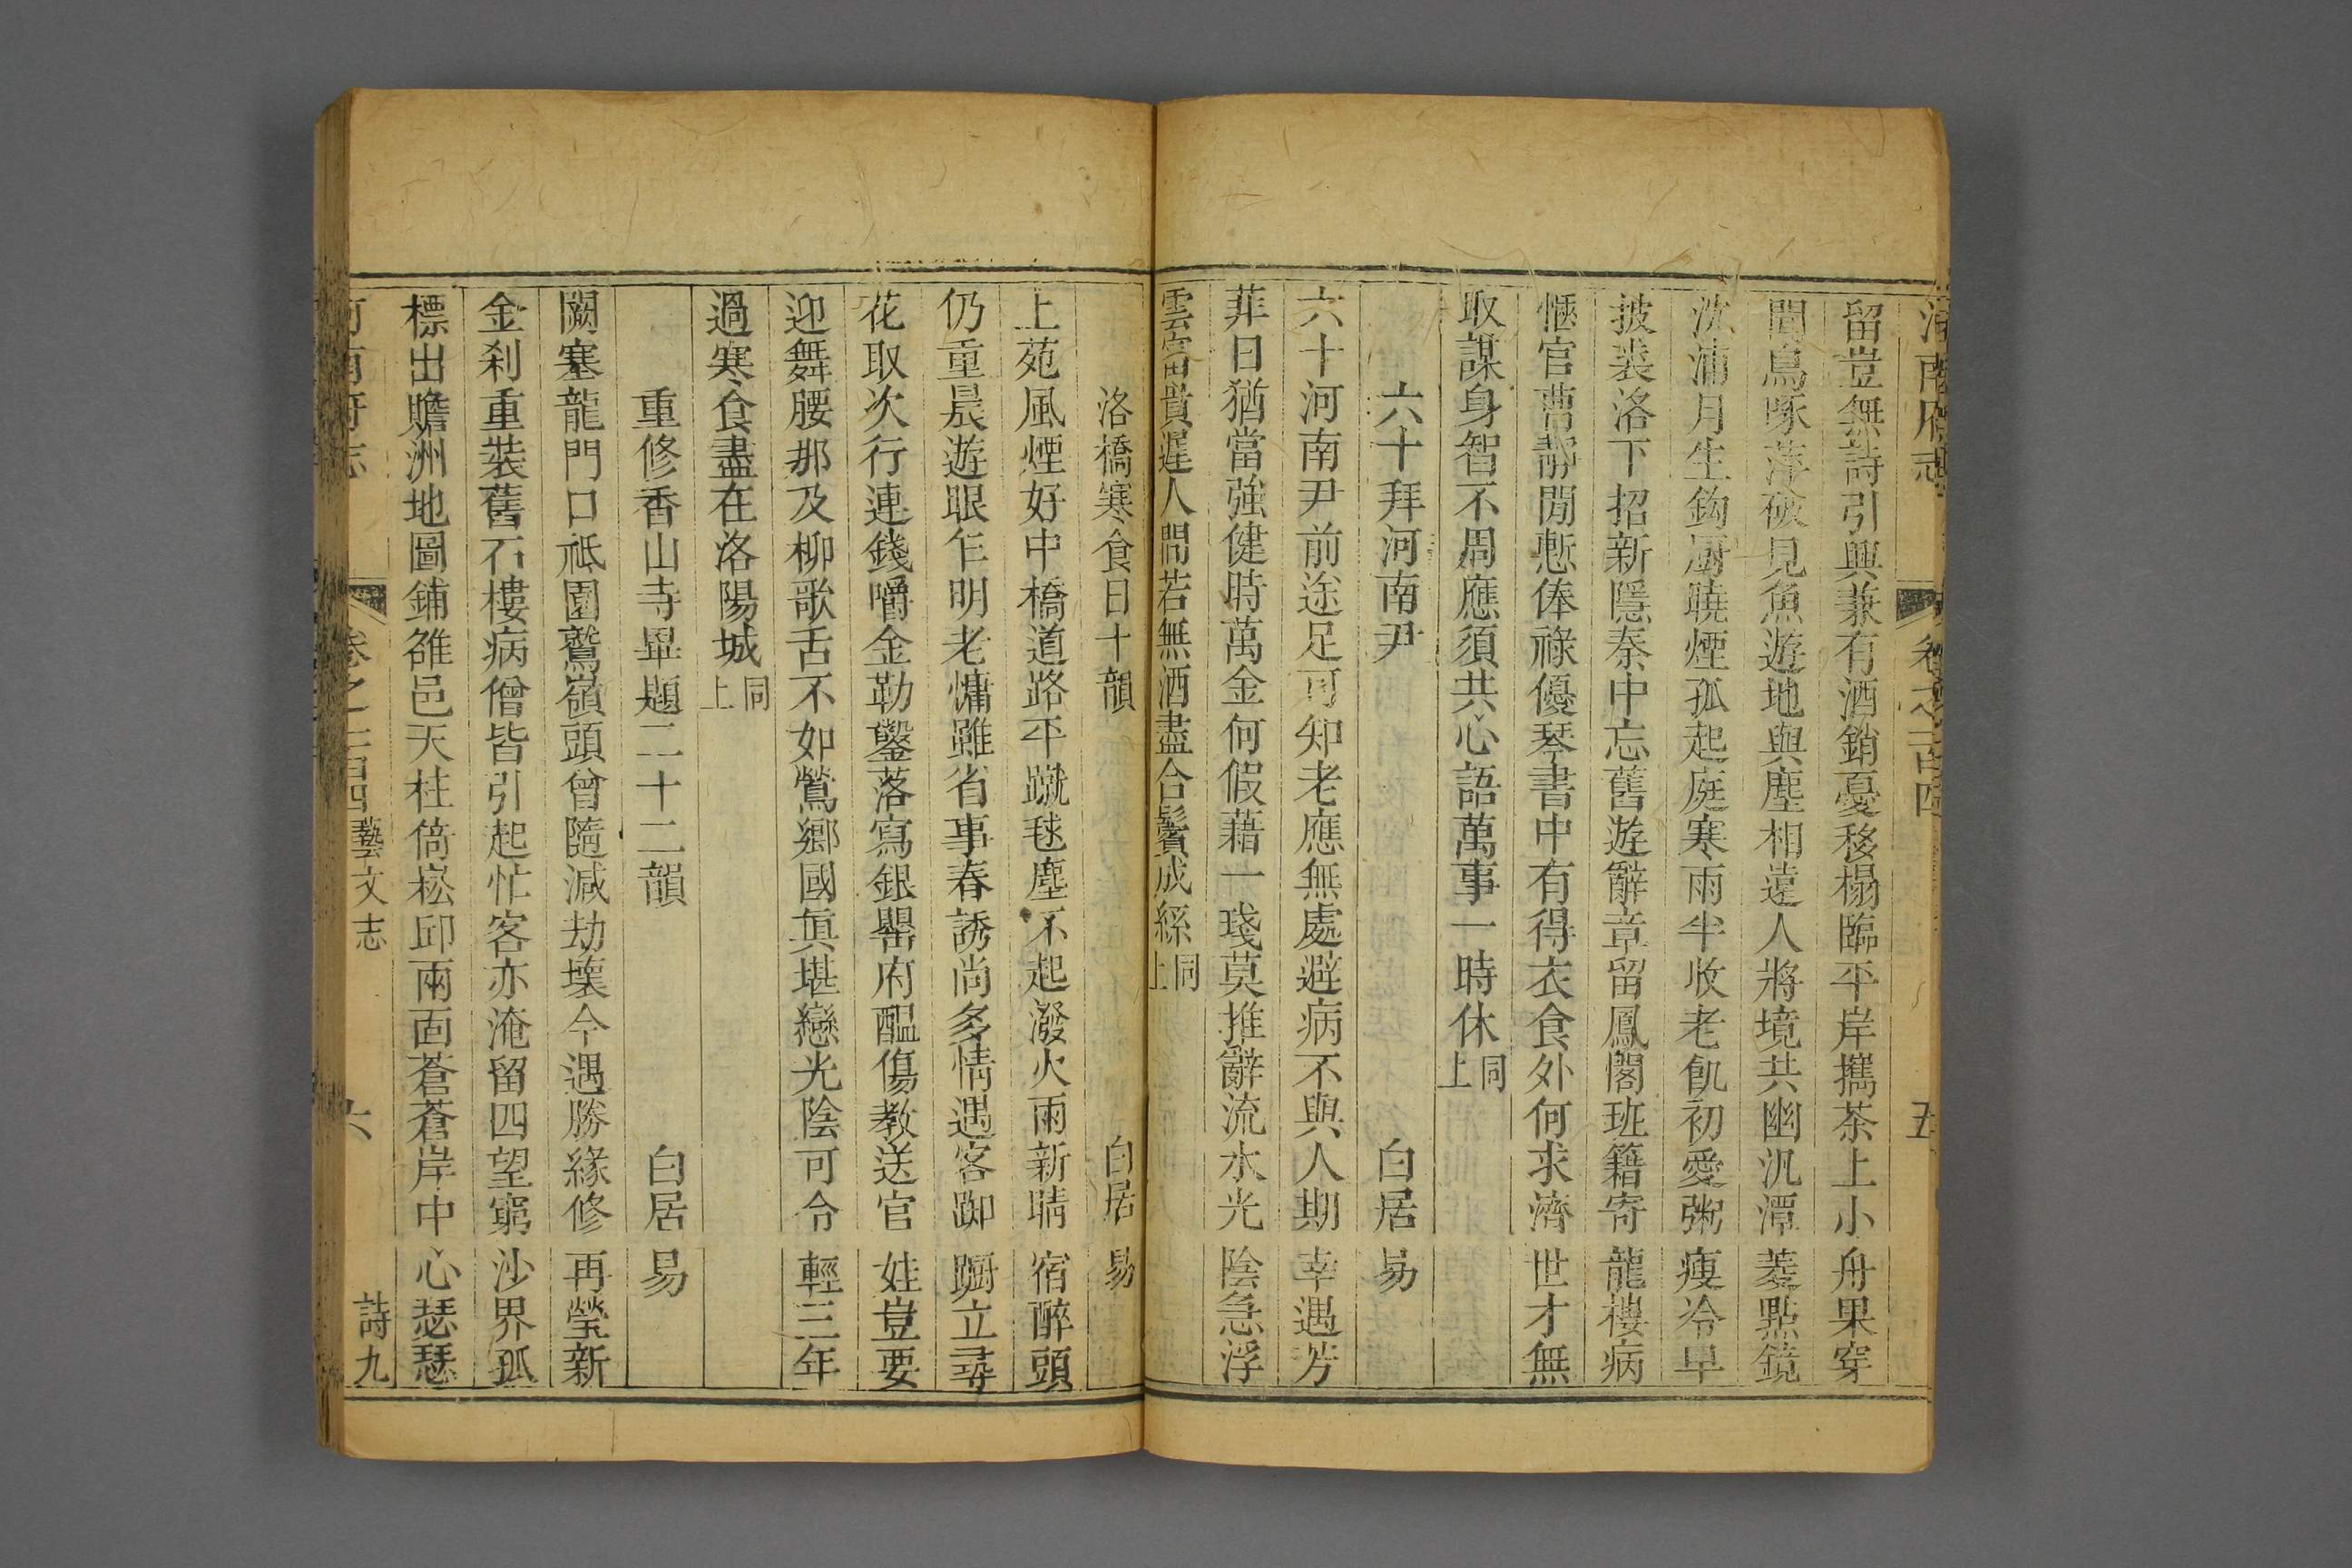 河南府志 卷之一百四 五
留豈無詩引興兼有酒銷憂移榻臨平岸攜茶上小舟果穿
聞鳥啄萍破見魚遊地與塵相遠人將境共幽汎潭菱點鏡
沈浦月生鈎厨曉煙孤起庭寒雨半收老飢初愛粥瘦冷早
披裘洛下招新隱秦中忘舊遊辭章留鳳閣班籍寄龍樓病
愜官曹靜閒慙俸祿優琴書中有得衣食外何求濟世才無
取謀身智不周應須共心語萬事一時休同上
六十拜河南尹 白居易
六十河南尹前途足可知老應無處避病不與人期幸遇芳
菲日猶當強健時萬金何假藉一琖莫推辭流水光陰急浮
雲富貴遲人間若無酒盡合鬢成絲同上
洛橋寒食日十韻 白居易
上苑風煙好中橋道路平蹴毬塵不起潑火雨新晴宿醉頭
仍重晨遊眼乍明老慵雖省事春誘尚多情遇客踟躕立尋
花取次行連錢嚼金勒鑿落寫銀罌府醞傷教送官娃豈要
迎舞腰那及柳歌舌不如鶯鄉國眞堪戀光陰可令輕三年
過寒食盡在洛陽城同上
重修香山寺畢題二十二韻 白居易
闕塞龍門口祗園鷲嶺頭曾隨減劫壞今遇勝緣修再瑩新
金刹重裝舊石樓病僧皆引起忙客亦淹留四望窮沙界孤
標出贍洲地圖鋪雒邑天柱倚崧邱兩面蒼蒼岸中心瑟瑟
河南府志 卷之一百四 藝文志 六 詩九